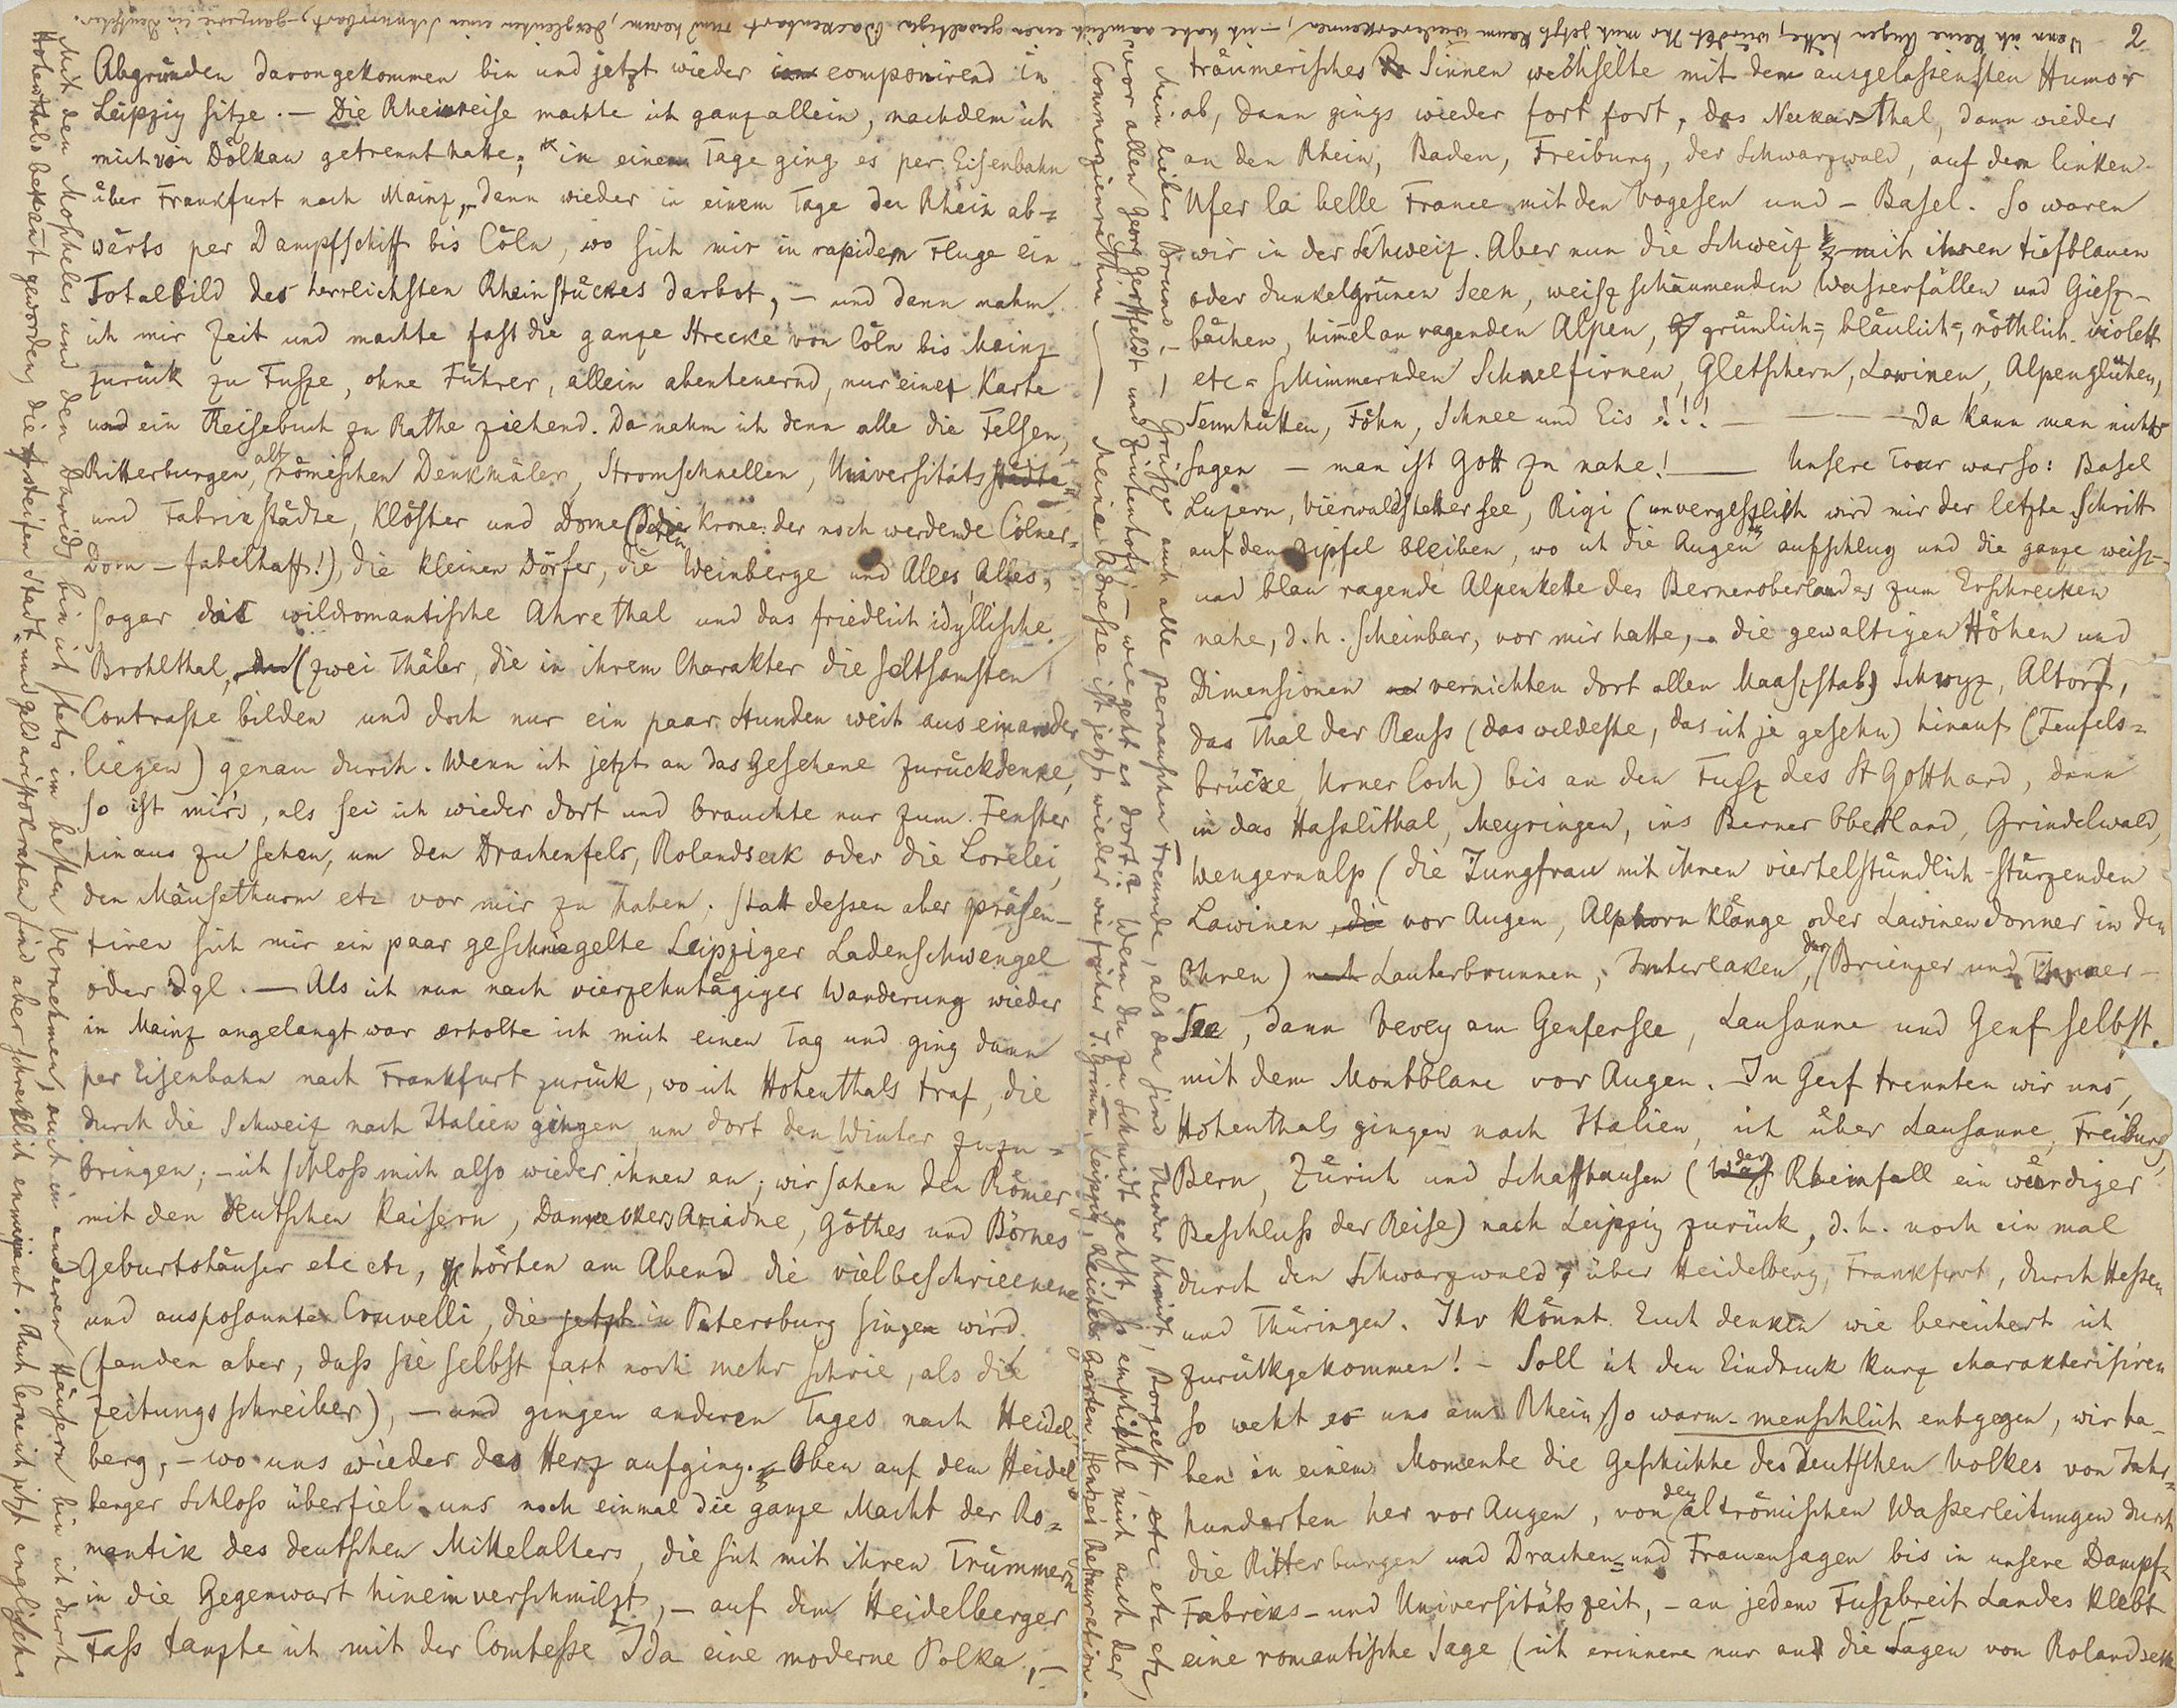 Abgründen davongekommen bin und jetzt wieder componirend in
Leipzig sitze. — Die Rheinreise machte ich ganz allein, nachdem ich
mich von Dölkau getrennt hatte; in einem Tage ging es per Eisenbahn
über Frankfurt nach Mainz, dann wieder in einem Tage den Rhein ab=
wärts per Dampfschiff bis Cöln, wo sich mir in rapidem Fluge ein
Totalbild des herrlichsten Rheinstückes darbot, — und dann nahm
ich mir Zeit und machte fast die ganze Strecke von Cöln bis Mainz
zurück zu Fusze, ohne Führer, allein abenteuernd, nur eine Karte
und ein Reisebuch zu Rathe ziehend. Da nahm ich denn alle die Felsen,
Ritterburgen, altrömischen Denkmäler, Stromschnellen, Universitäts
und Fabrikstädte, Klöster und Dome (deren Krone: der noch werdende Cölner=
Dom — fabelhaft!), die kleinen Dörfer, die Weinberge und Alles, Alles,
sogar das wildromantische Ahrethal und das friedlich idyllische
Brohlthal, (zwei Thäler, die in ihrem Charakter die seltsamsten
Contraste bilden und doch nur ein paar Stunden weit aus einander
liegen) genau durch. Wenn ich jetzt an das Gesehene zurückdenke,
so ist mir's, als sei ich wieder dort und brauchte nur zum Fenster
hinaus zu sehen, um den Drachenfels, Rolandseck oder die Lorelei,
den Mäusethurm etc vor mir zu haben. Statt dessen aber präsen-
tiren sich mir ein paar geschniegelte Leipziger Ladenschwengel
oder dgl. — Als ich nun nach vierzehntägiger Wanderung wieder
in Mainz angelangt war erholte ich mich einen Tag und ging dann
per Eisenbahn nach Frankfurt zurück, wo ich Hohenthals traf, die
durch die Schweiz nach Italien gingen um dort den Winter zuzu=
bringen; — ich schloss mich also wieder ihnen an; wir sahen den Römer
mit den deutschen Kaisern, Danneckers Ariadne, Göthes und Börnes
Geburtshäuser etc etc, hörten am Abend die vielbeschrieene
und ausposaunte Cruvelli, die jetzt in Petersburg singen wird
(fanden aber, dass sie selbst fast noch mehr schrie, als die
Zeitungsschreiber), — und gingen anderen Tages nach Heidel=
berg, — wo uns wieder das Herz aufging. — Oben auf dem Heidel=
berger Schloss überfiel uns noch einmal die ganze Macht der Ro=
mantik des deutschen Mittelalters, die sich mit ihren Trümmern
in die Gegenwart hinein verschmilzt, — auf dem Heidelberger
Fass tanzte ich mit der Comtesse Ida eine moderne Polka, —
Mit den Moscheles und den Davids bin ich stets im besten Vernehmen, auch in anderen Häusern bin ich durch
Hohenthals bekannt geworden, die steifen Stadt- und Geldaristokraten sind aber schrecklich ennuyant. Auch lerne ich jetzt englisch.
2
träumerisches Sinnen wechselte mit dem ausgelassensten Humor
ab, dann gings wieder fort fort, das Neckarthal, dann wieder
an den Rhein, Baden, Freiburg, der Schwarzwald, auf dem linken
Ufer la belle France mit den Vogesen und — Basel. So waren
wir in der Schweiz. Aber nun die Schweiz mit ihren tiefblauen
oder dunkelgrünen Seen, weisz schäumenden Wasserfällen und Giesz-
bächen, himmelan ragenden Alpen, grünlich=, bläulich=, röthlich- violett
etc = schimmernden Schneefirnen, Gletschern, Lawinen, Alpenglühen,
Sennhütten, Föhn, Schnee und Eis !!! — Da kann man nichts
sagen — man ist Gott zu nahe! — Unsere Tour war so: Basel
Luzern, Vierwaldstettersee, Rigi (unvergesslich wird mir der letzte Schritt
auf den Zipfel bleiben, wo ich die Augen aufschlug und die ganze weisz-
und blau ragende Alpenkette des Berneroberlandes zum Erschrecken
nahe, d.h. scheinbar, vor mir hatte, — die gewaltigen Höhen und
Dimensionen vernichten dort allen Maaszstab) Schwyz, Altorf,
das Thal der Reuss (das wildeste, das ich je gesehn) hinauf (Teufels=
brücke, Urner Loch) bis an den Fusz des St Gotthard, dann
in das Hasslithal, Meyringen, ins Berner Oberland, Grindelwald,
Wengernalp (die Jungfrau mit ihren viertelstündlich stürzenden
Lawinen vor Augen, Alphornklänge oder Lawinendonner in den
Ohren) Lauterbrunnen, Interlaken, der Brienzer und Thuner-
See, dann Vevey am Genfersee, Lausanne und Genf selbst
mit dem Montblanc vor Augen. In Genf trennten wir uns,
Hohenthals gingen nach Italien, ich über Lausanne, Freiburg,
Bern, Zürich und Schaffhausen (der Rheinfall ein würdiger
Beschluss der Reise) nach Leipzig zurück, d.h. noch ein mal
durch den Schwarzwald, über Heidelberg, Frankfurt, durch Hessen
und Thüringen. Ihr könnt Euch denken wie bereichert ich
zurückgekommen! — Soll ich den Eindruck kurz charakterisiren
so weht es uns am Rhein so warm-menschlich entgegen, wir ha-
ben in einem Momente die Geschichte des deutschen Volkes von Jahr=
hunderten her vor Augen, von den altrömischen Wasserleitungen durch
die Ritterburgen und Drachen= und Frauensagen bis in unsere Dampf=
Fabriks- und Universitätszeit, — an jedem Fuszbreit Landes klebt
eine romantische Sage (ich erinnere nur an die Sagen von Rolandseck
Mein lieber Bruno, — Grüsze auch alle pernauschen Freunde, als da sind Theodor Schmidt, Borgeest, etc etc etc etc
vor allen Georg Gerstfeldt und Zietenhof; — wie geht es dort? Wenn du zu Schmidt gehst, so empfiehl mich auch der
Commerzienräthin — Meine Adresse ist jetzt wieder wie früher J. Grimm, Leipzig, Reichels Garten, Hentzes Restauration.
Wenn ich keine Augen hätte, würdet Ihr mich jetzt kaum wiedererkennen, — ich habe nämlich einen gewaltigen Backenbart rund herum, dergleichen einen Schnurrbart, —